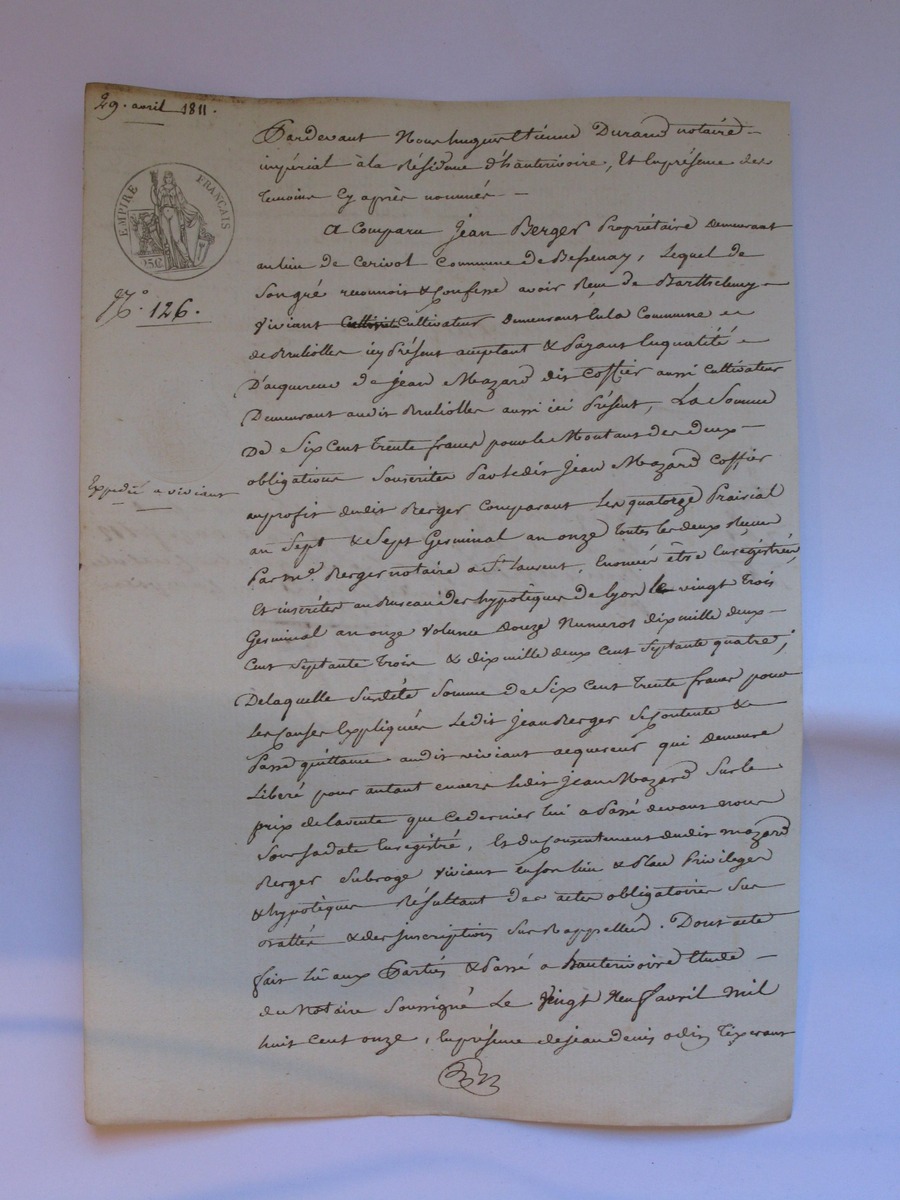 29. avril 1811.
EMPIRE FRANÇAIS
25 C.
N.° 126.
Expedié a viviant
Pardevant Nous hugues Etienne Durand notaire
impérial à la Résidence d'hauterivoire, Et En présence des
temoins Cy après nommés
A Comparu Jean Berger Propriétaire demeurant
au lieu de Cerivol Commune de Bessenay, Lequel de
Son gré reconnoit & Confesse avoir Reçu de Barthelemy
Viviant Cultivateur demeurant en la Commune
de Brulioles icy Présent acceptant & Payant En qualité
D'acquereur de Jean Mazard dit Coffier aussi Cultivateur
Demeurant audit Brulioles aussi ici Présent, La Somme
De Six Cent trente francs pour le Montant des deux
obligations Souscrites Par ledit Jean Mazard Coffier
au profit dudit Berger Comparant Les quatorze Prairial
an Sept & Sept Germinal an onze toutes les deux Reçues
Par m.e Berger notaire a St. Laurent, Enoncées être Enregistrées
Et inscrites au Bureau des hypotèques de Lyon le vingt trois
Germinal an onze Volume Douze Numeros dix mille deux
Cent Septante trois & dix mille deux cent Septante quatre ;
De laquelle Susdite Somme de Six Cent trente francs pour
Les Causes Expliquées Ledit Jean Berger Se Contente &
Passe quittance audit viviant acquereur qui Demeure
Liberé pour autant envers ledit Jean Mazard Sur le
prix de la vente que ce dernier lui a Passé devant nous
Sous Sa date Enregistré, Et du Consentement dudit mazard
Berger Subroge Viviant En Son lieu & Place Privileges
& hypotèques Résultant des actes obligatoires Sus
& des inscriptions Sus Rappellées. Dont acte
fait Lû aux Parties & Passé a hauterivoire Etude
du Notaire Soussigné Le Vingt Neuf avril Mil
huit Cent onze, En présence de jean denis odin Tixerant